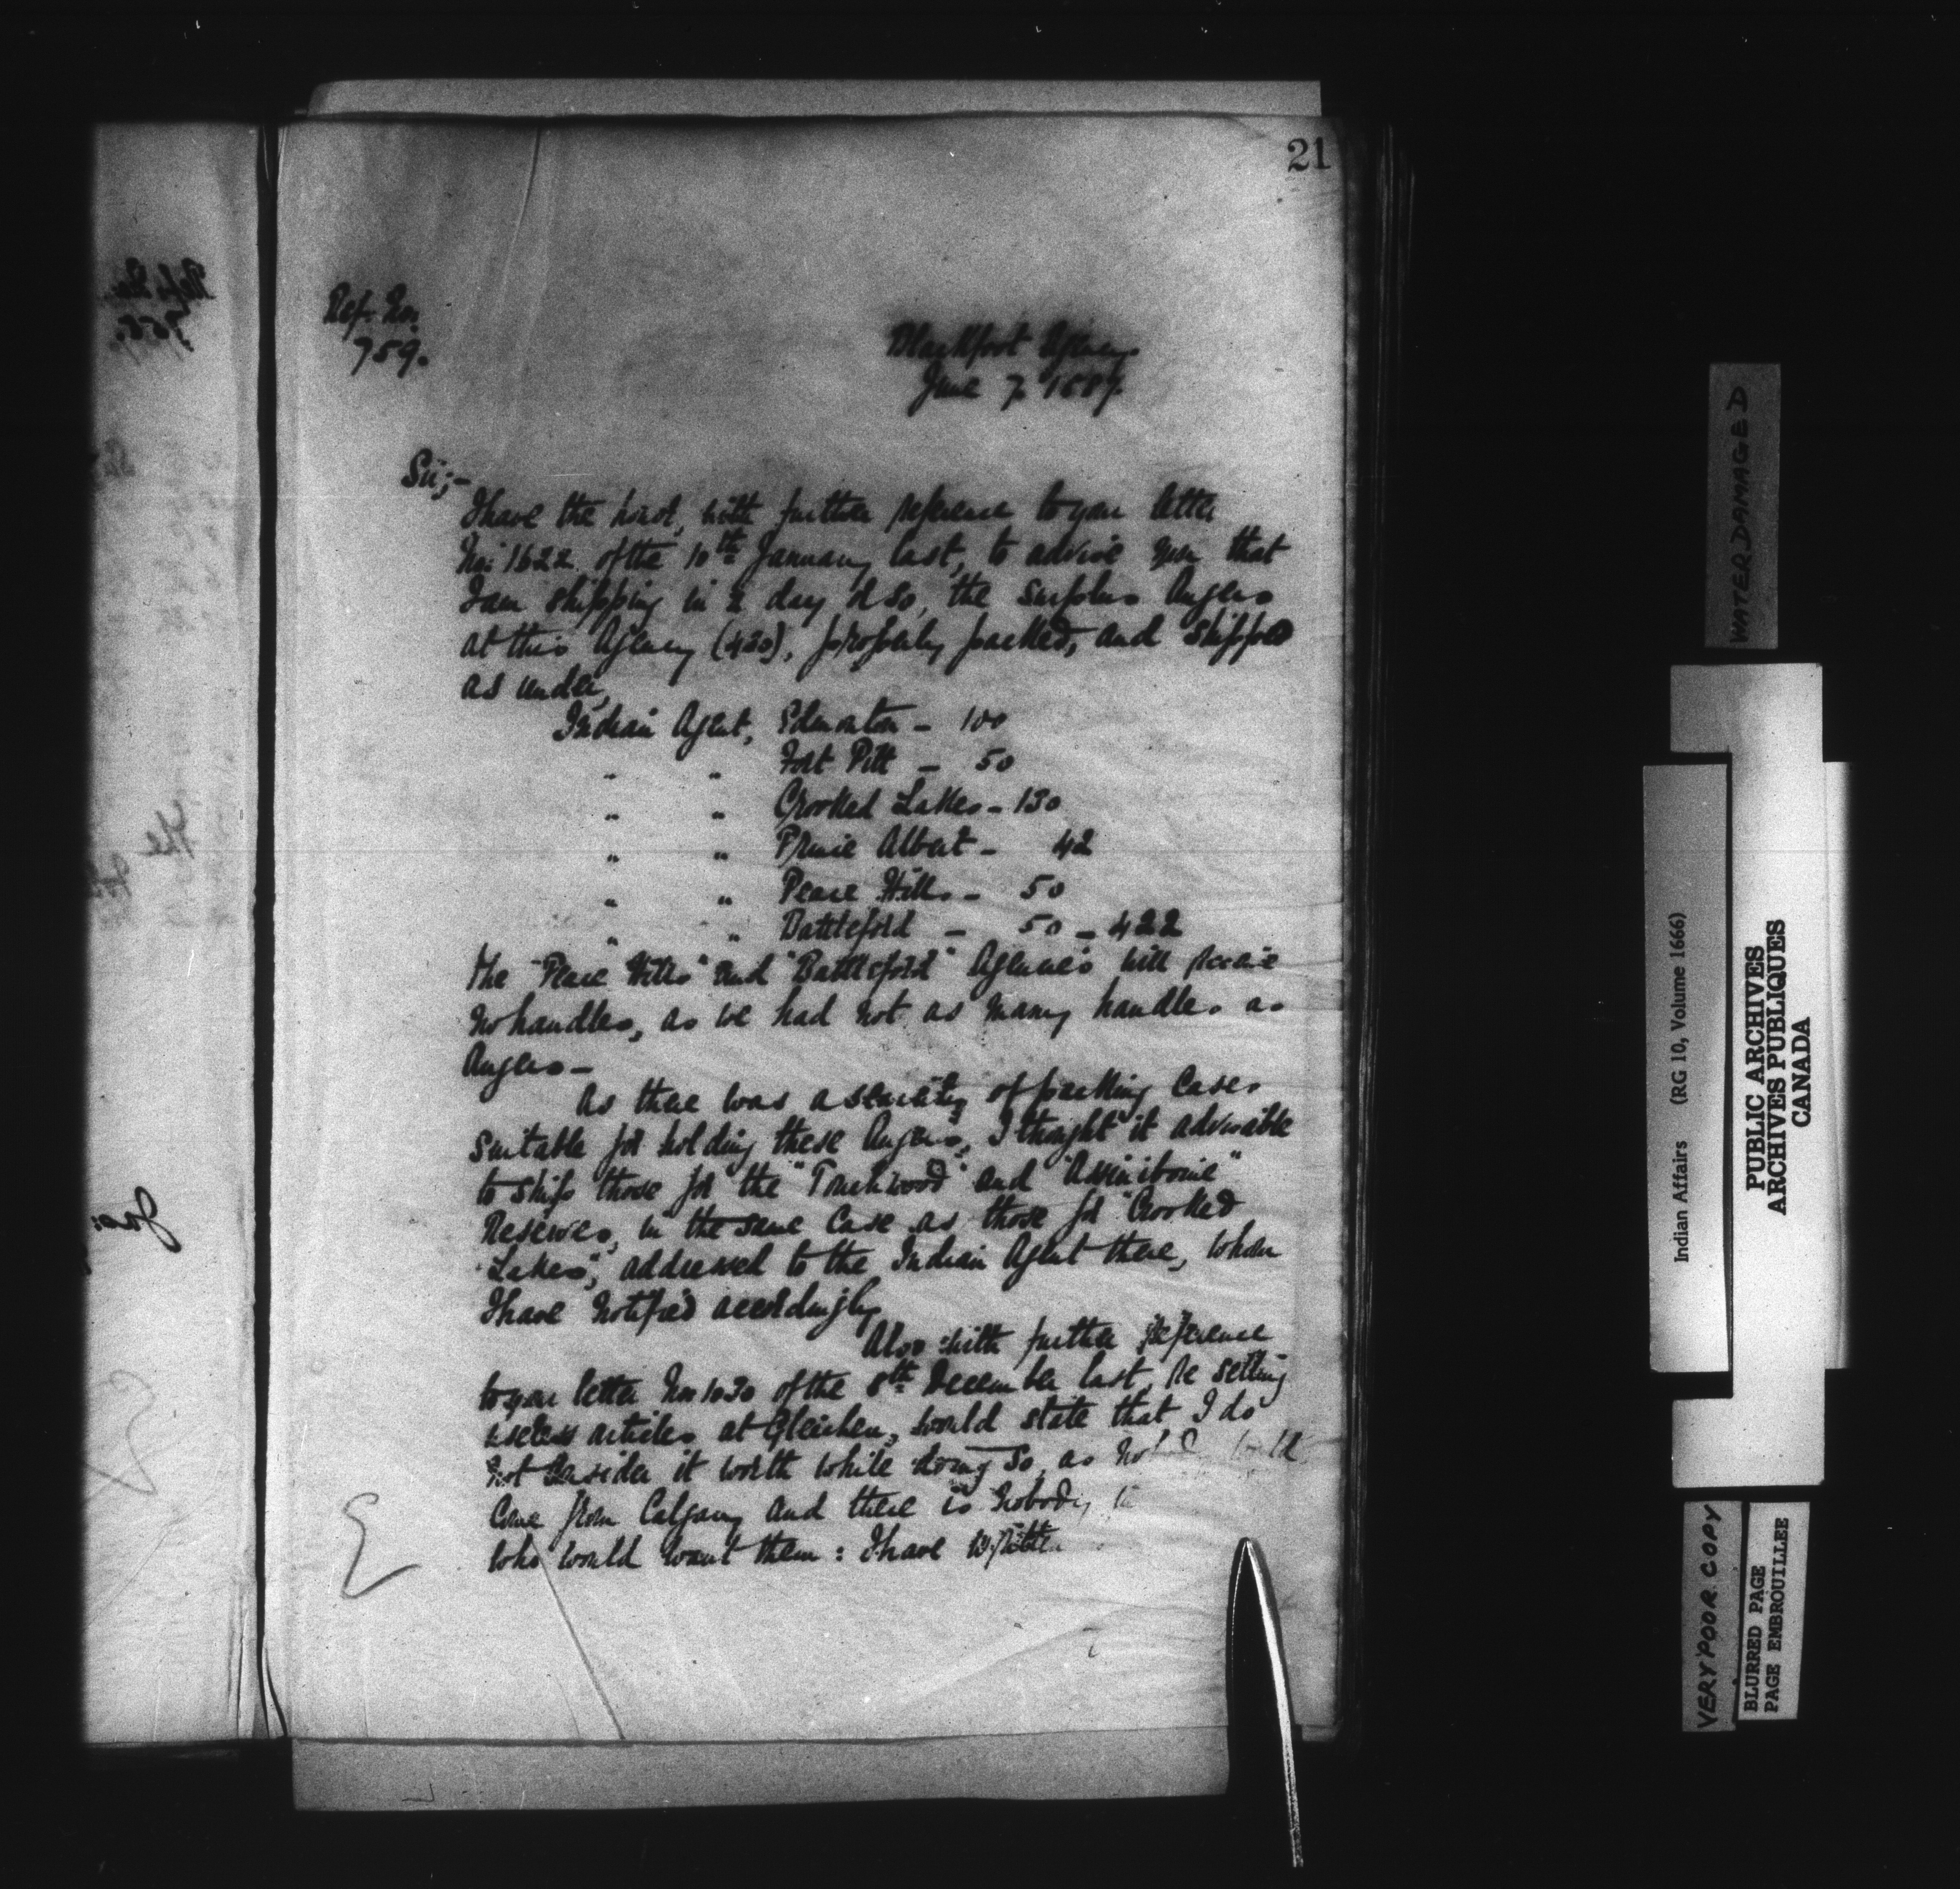 21
Ref. No.
759.
Blackfoot Agency
June 7, 1887.
Sir;-
I have the honor, with further reference to your letter
No. 1622 of the 10th January last, to advise you that
I am shipping in a day or so, the surplus Augers
at this Agency (420), properly packed, and shipped
as under,
Indian Agent, Edmonton - 100
" " Fort Pitt - 50
" " Crooked Lakes - 130
" " Prince Albert - 42
" " Peace Hills - 50
" " Battleford - 50 - 422
The "Peace Hills" and "Battleford" Agencies will receive
no handles, as we had not as many handles as
Augers -
As there was a scarcity of packing cases
suitable for holding these Augers, I thought it advisable
to ship those for the "Touchwood" and "Assiniboine"
Reserves, in the same case as those for "Crooked
Lakes", addressed to the Indian Agent there, whom
I have notified accordingly
Also with further reference
to your letter No. 1030 of the 8th December last, re selling
useless articles at Gleichen, would state that I do
not consider it worth while doing so, as
come from Calgary and there is nobody
who would want them: I have written
WATER DAMAGED
Indian Affairs (RG 10, Volume 1666)
PUBLIC ARCHIVES
ARCHIVES PUBLIQUES
CANADA
VERY POOR COPY
BLURRED PAGE
PAGE EMBROUILLEE